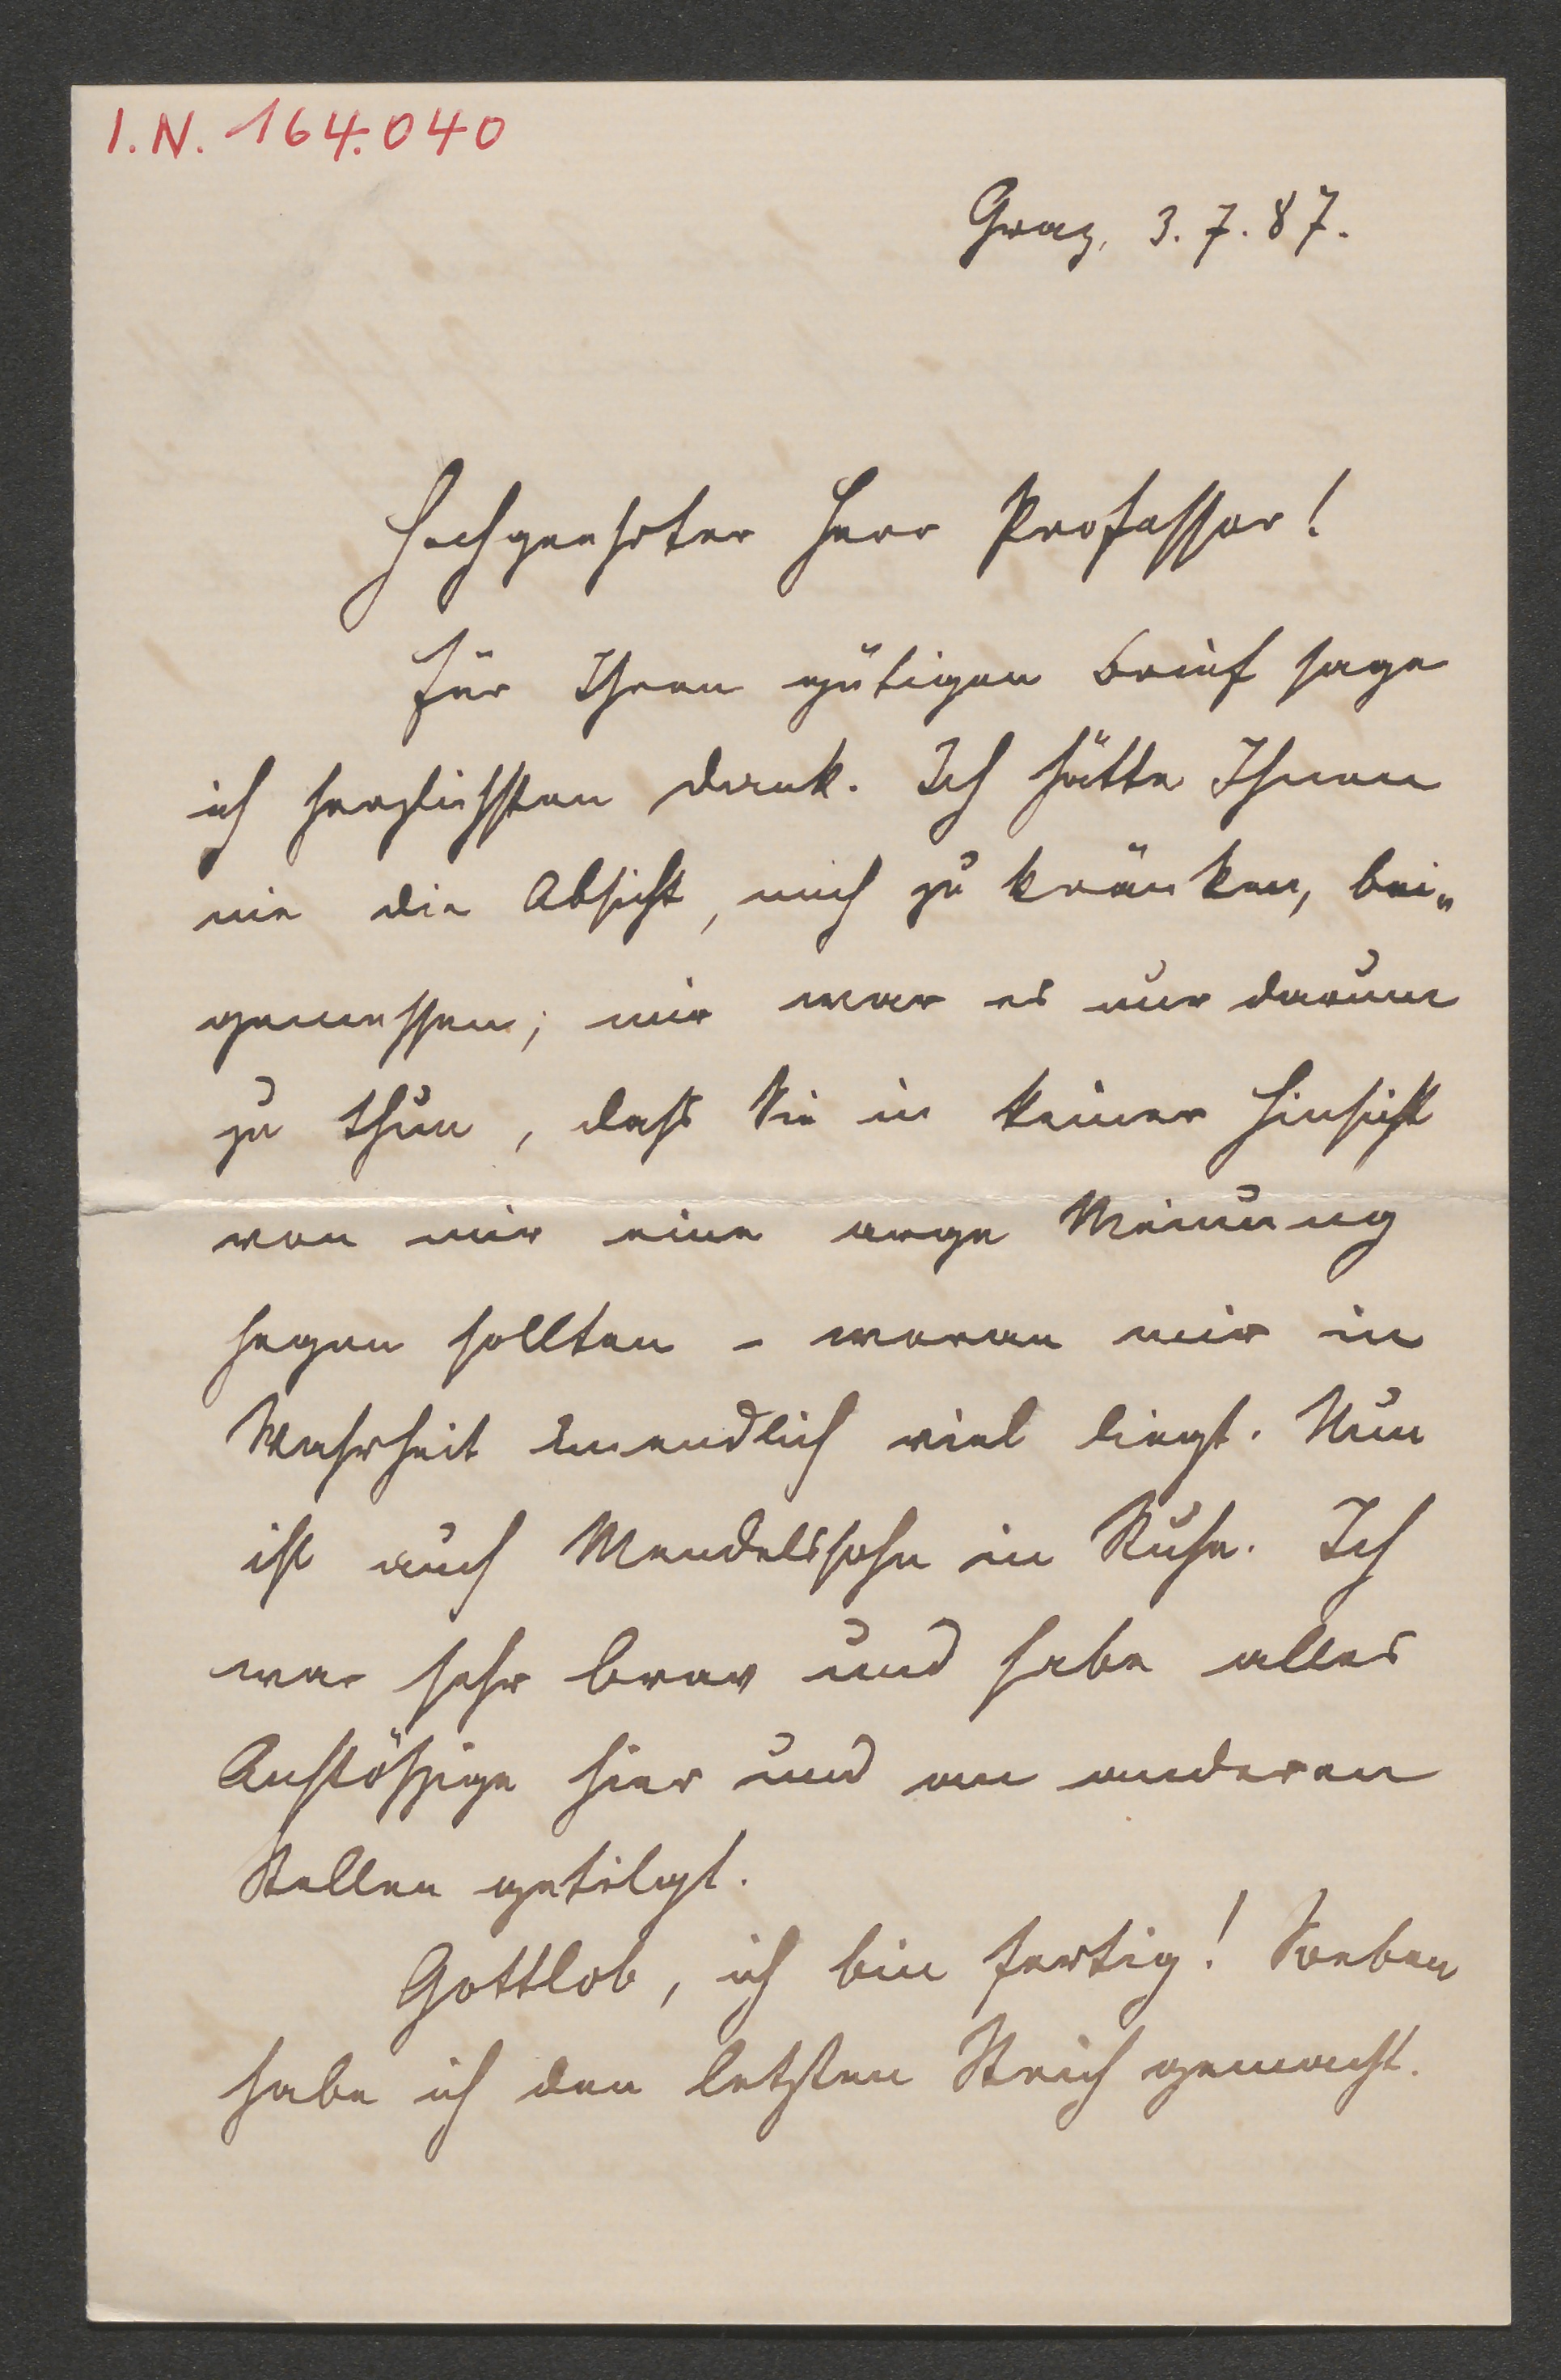 I.N. 164.040
Graz, 3. 7. 87.
Hochgeehrter Herr Professor!
Für Ihren gütigen Brief sage
ich herzlichsten Dank. Ich hätte Ihnen
nie die Absicht, mich zu kränken, bei„
gemessen; mir war es nur darum
zu thun, dass Sie in keiner Hinsicht
von mir eine arge Meinung
hegen sollten – woran mir in
Wahrheit unendlich viel liegt. Nun
ist auch Mendelssohn in Ruhe. Ich
war sehr brav und habe alles
Anstößige hier und an anderen
Stellen getilgt.
Gottlob, ich bin fertig! Soeben
habe ich den letzten Strich gemacht.